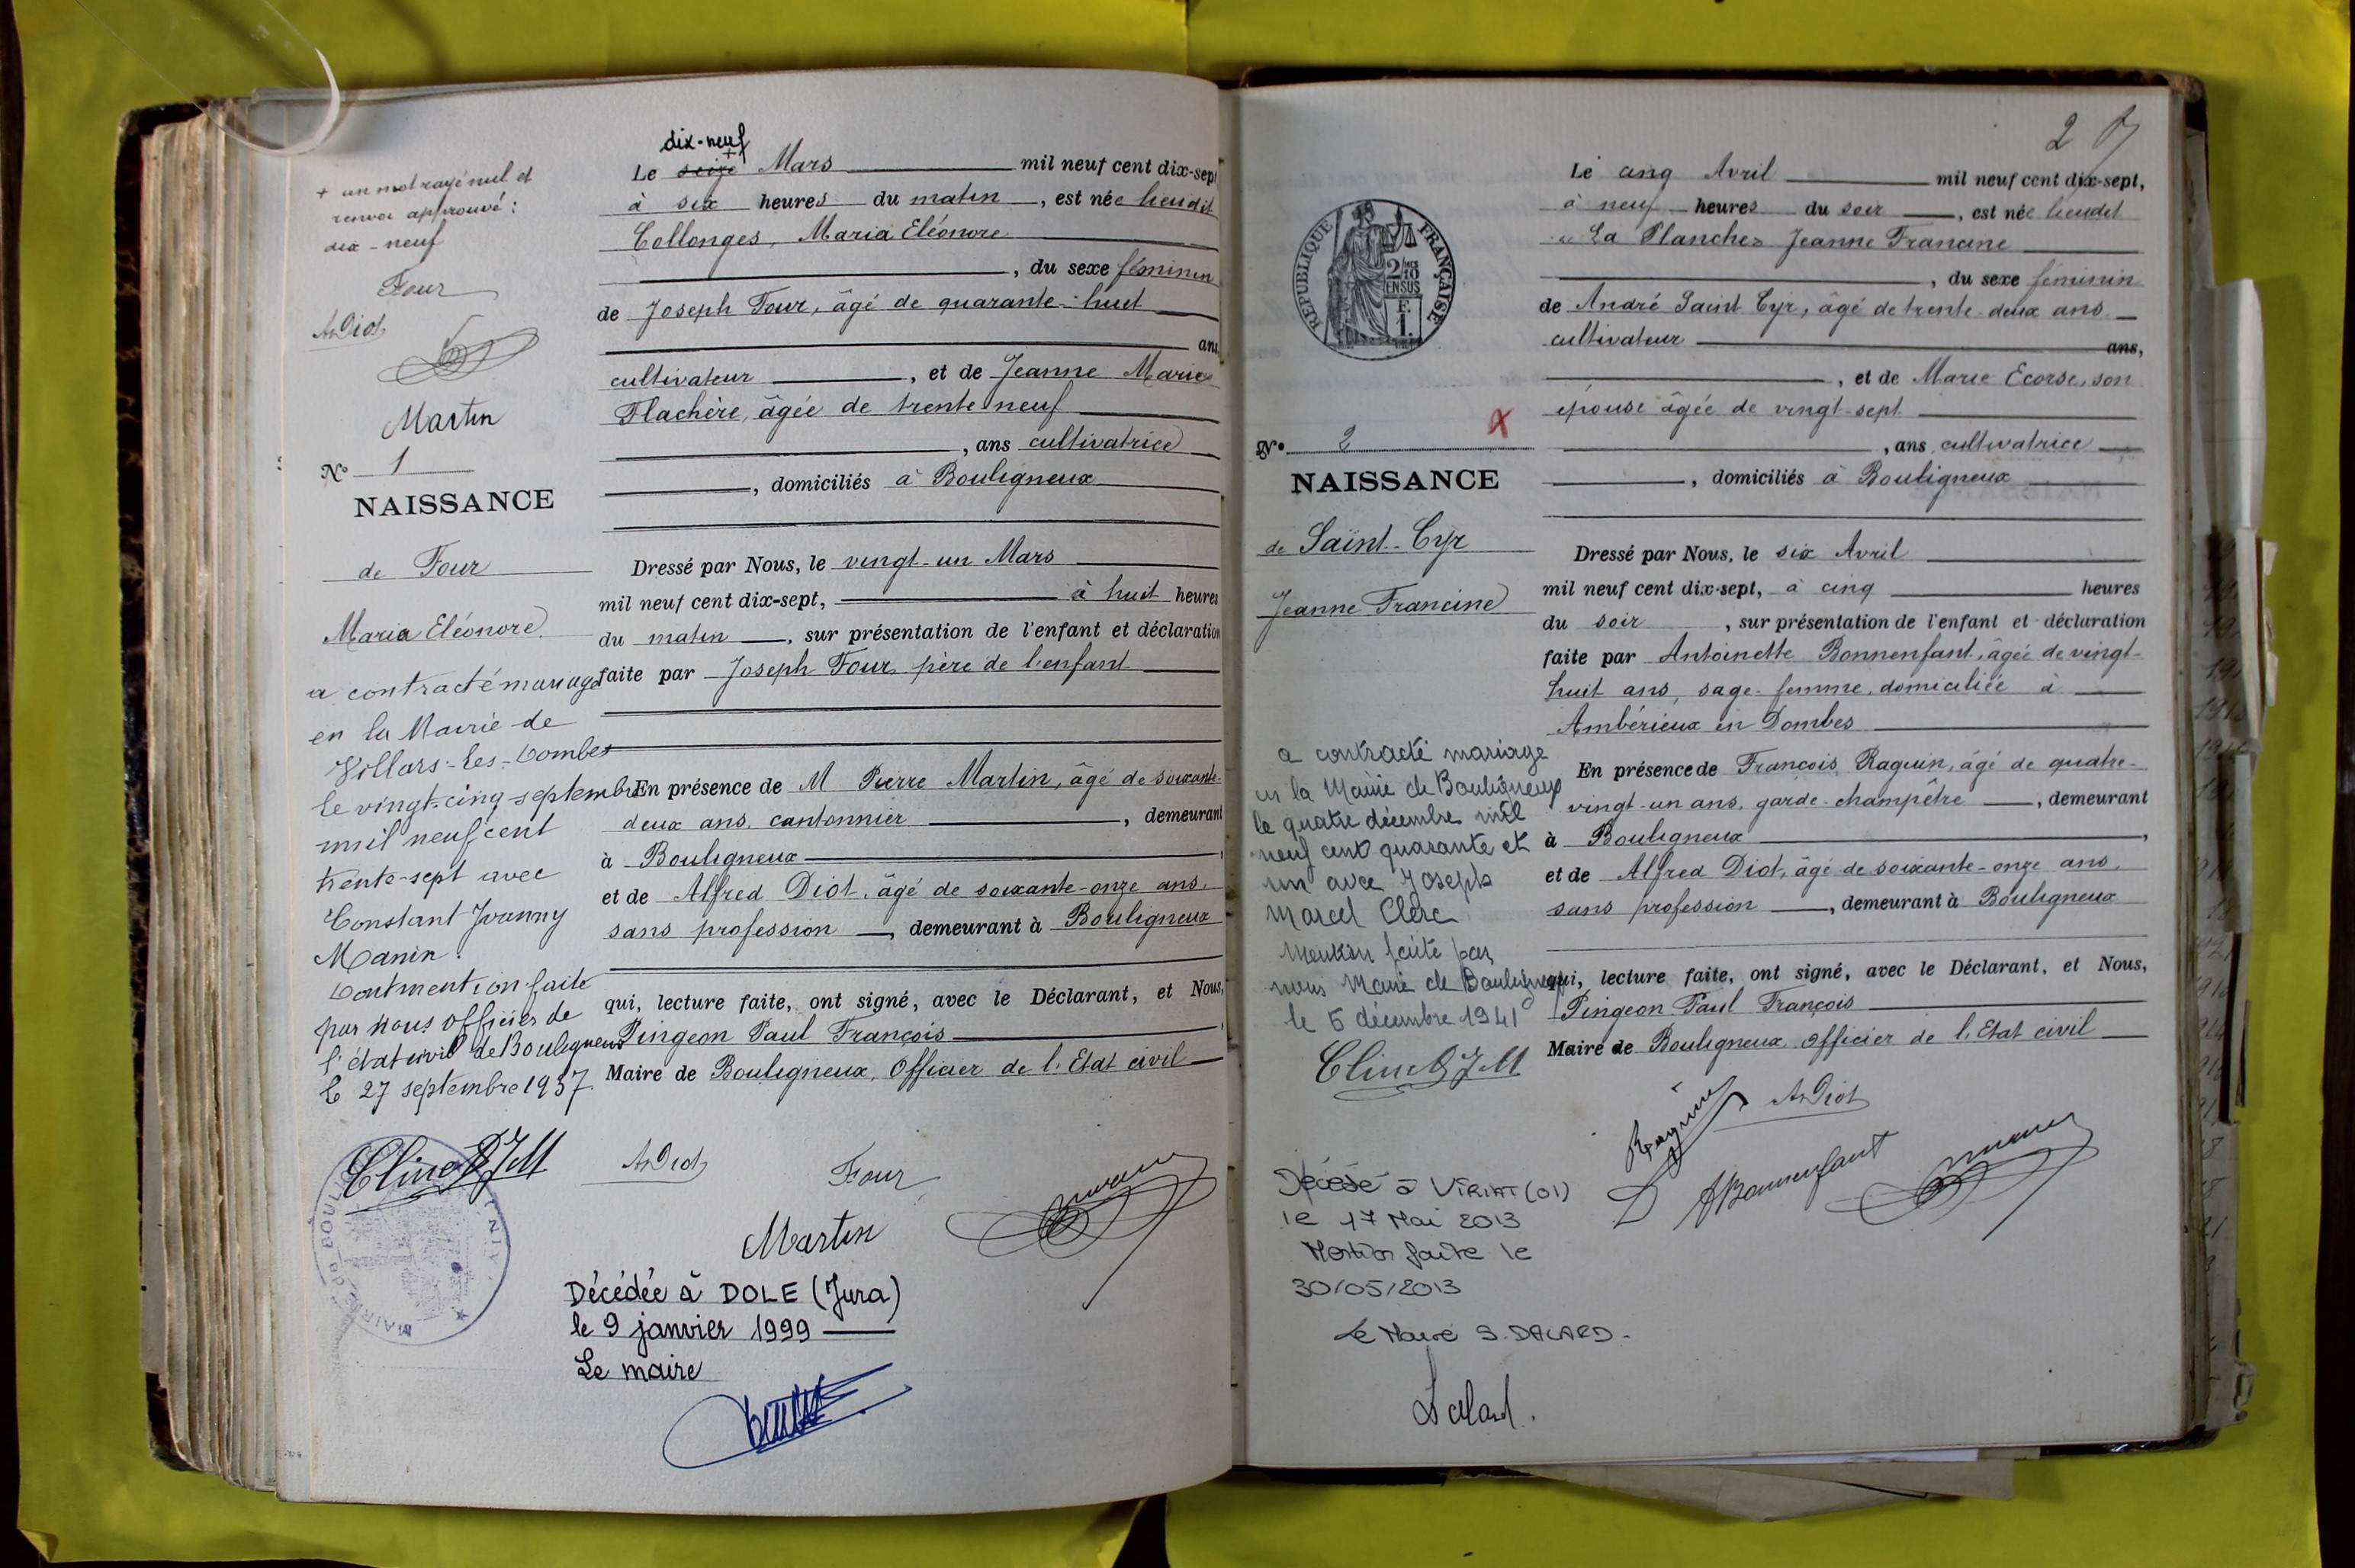 + un mot rayé nul et
renvoi approuvé :
dix-neuf
Four
A. Diot
Martin
N° 1
NAISSANCE
de Four
Maria Eléonore
a contracté mariage
en la Mairie de
Villars-les-Dombes
le vingt-cinq septembre
mil neuf cent
trente-sept avec
Constant Joanny
Manin.
Dont mention faite
par nous officier de
l'état civil de Bouligneux
le 27 septembre 1937.
dix-neuf
Le seize + Mars mil neuf cent dix-sept
à six heures du matin, est née lieudit
Collonges, Maria Eléonore
, du sexe féminin
de Joseph Four, âgé de quarante-huit
ans,
cultivateur, et de Jeanne Marie
Flachère, âgée de trente neuf
, ans cultivatrice
, domiciliés à Bouligneux
Dressé par Nous, le vingt-un Mars
mil neuf cent dix-sept, à huit heures
du matin, sur présentation de l'enfant et déclaration
faite par Joseph Four, père de l'enfant
En présence de M Pierre Martin, âgé de soixante-
deux ans, cantonnier, demeurant
à Bouligneux,
et de Alfred Diot, âgé de soixante-onze ans,
sans profession, demeurant à Bouligneux
qui, lecture faite, ont signé, avec le Déclarant, et Nous,
Pingeon Paul François,
Maire de Bouligneux, Officier de l'Etat civil
A. Diot
Four
Martin
MAIRIE de BOULIGNEUX
Décédée à DOLE (Jura)
le 9 janvier 1999
Le maire
2
RÉPUBLIQUE FRANÇAISE
2/10
EN SUS
F.
1.
N° 2
X
NAISSANCE
de Saint-Cyr
Jeanne Francine
a contracté mariage
en la Mairie de Bouligneux
le quatre décembre mil
neuf cent quarante et
un avec Joseph
Marcel Clerc
Mention faite par
nous Maire de Bouligneux
le 5 décembre 1941
Décédé à VIRIAT (01)
le 17 Mai 2013
Mention faite le
30/05/2013
Le Maire S. DALARD.
Dalard.
Le cinq Avril mil neuf cent dix-sept,
à neuf heures du soir, est née lieudit
La Planches Jeanne Francine
, du sexe féminin
de André Saint Cyr, âgé de trente-deux ans
cultivateur ans,
, et de Marie Ecorse, son
épouse âgée de vingt-sept
, ans, cultivatrice
, domiciliés à Bouligneux
Dressé par Nous, le six Avril
mil neuf cent dix-sept, à cinq heures
du soir, sur présentation de l'enfant et déclaration
faite par Antoinette Bonnenfant, âgée de vingt-
huit ans, sage-femme, domiciliée à
Ambérieux en Dombes
En présence de François Raguin, âgé de quatre-
vingt-un ans, garde-champêtre, demeurant
à Bouligneux,
et de Alfred Diot, âgé de soixante-onze ans,
sans profession, demeurant à Bouligneux
qui, lecture faite, ont signé, avec le Déclarant, et Nous,
Pingeon Paul François
Maire de Bouligneux, Officier de l'Etat civil
Raguin
A. Diot
A Bonnenfant